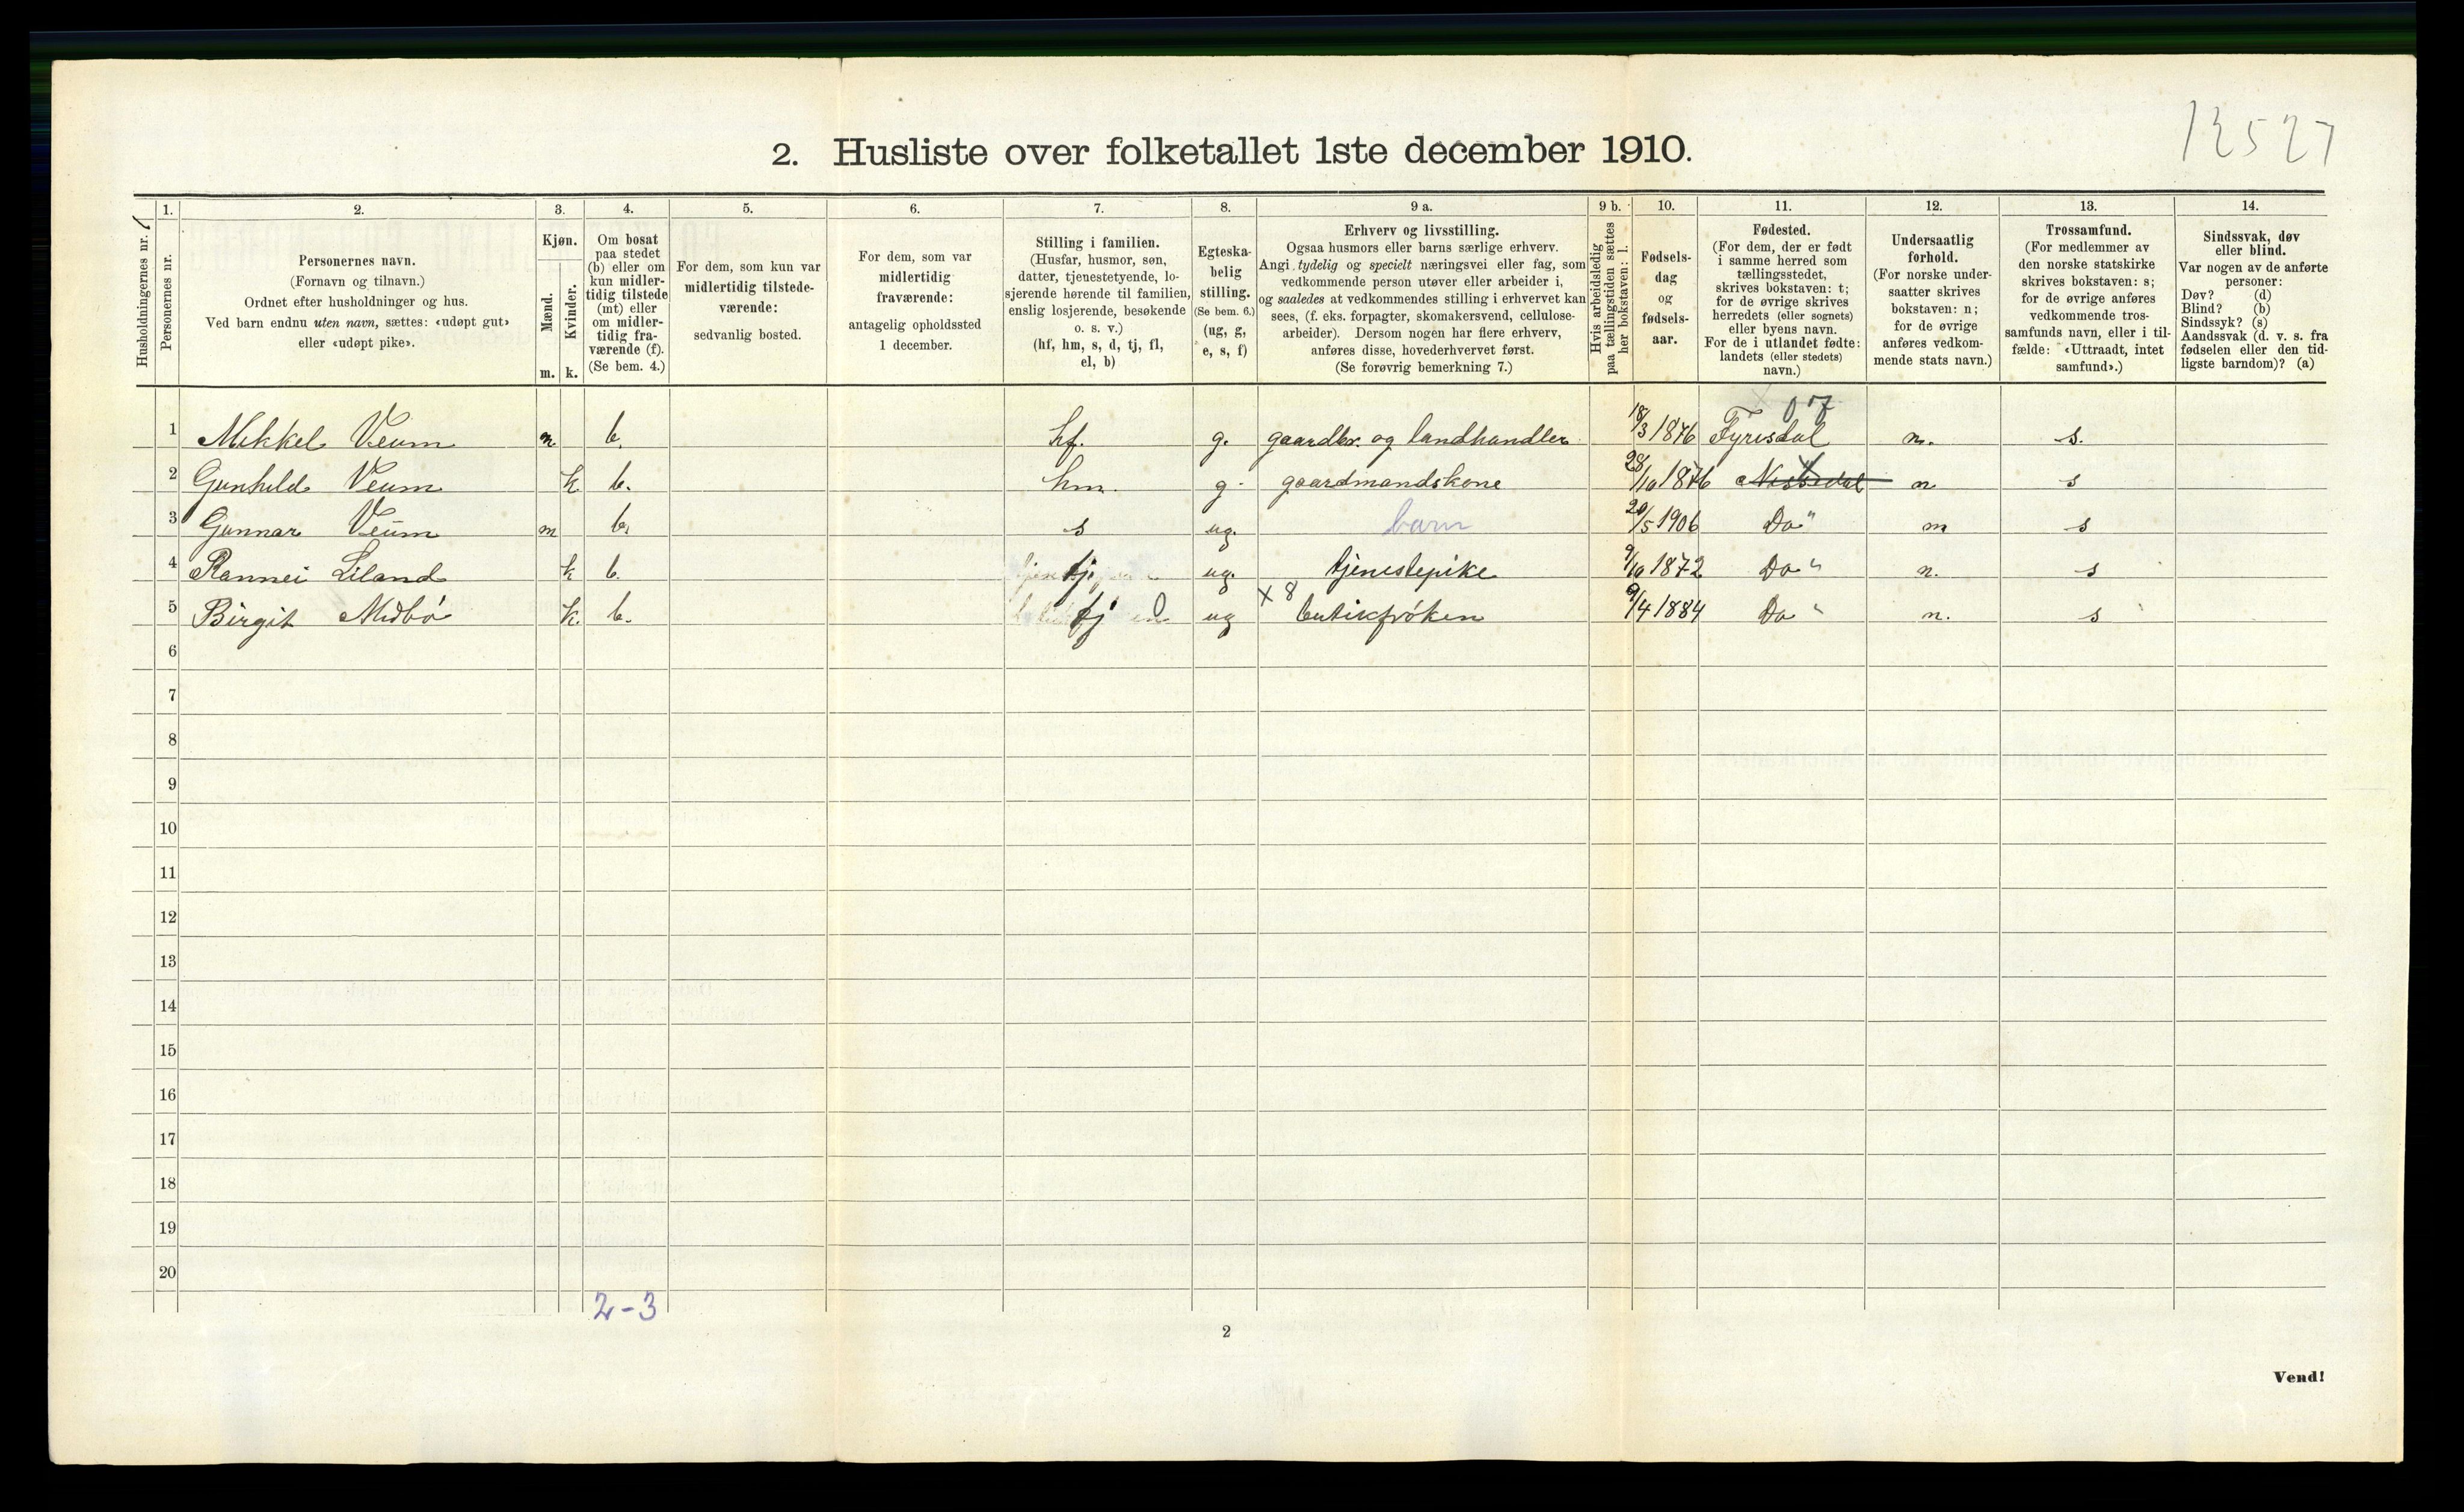 12527
2. Husliste over folketallet 1ste december 1910.
Husholdningernes nr. 1
1.
Personernes nr.
2.
Personernes navn.
(Fornavn og tilnavn.)
Ordnet efter husholdninger og hus.
Ved barn endnu uten navn, sættes: «udøpt gut»
eller «udøpt pike».
3.
Kjøn.
Mænd.
Kvinder.
m. k.
4.
Om bosat
paa stedet
(b) eller om
kun midler-
tidig tilstede
(mt) eller
om midler-
tidig fra-
værende (f).
(Se bem. 4.)
5.
For dem, som kun var
midlertidig tilstede-
værende:
sedvanlig bosted.
6.
For dem, som var
midlertidig
fraværende:
antagelig opholdssted
1 december.
7.
Stilling i familien.
(Husfar, husmor, søn,
datter, tjenestetyende, lo-
sjerende hørende til familien,
enslig losjerende, besøkende
o. s. v.)
(hf, hm, s, d, tj, fl,
el, b)
8.
Egteska-
belig
stilling.
(Se bem. 6.)
(ug, g,
e, s, f)
9 a.
Erhverv og livsstilling.
Ogsaa husmors eller barns særlige erhverv.
Angi tydelig og specielt næringsvei eller fag, som
vedkommende person utøver eller arbeider i,
og saaledes at vedkommendes stilling i erhvervet kan
sees, (f. eks. forpagter, skomakersvend, cellulose-
arbeider). Dersom nogen har flere erhverv,
anføres disse, hovederhvervet først.
(Se forøvrig bemerkning 7.)
9 b.
Hvis arbeidsledig
paa tællingstiden sættes
her bokstaven: l.
10.
Fødsels-
dag
og
fødsels-
aar.
11.
Fødested.
(For dem, der er født
i samme herred som
tællingsstedet,
skrives bokstaven: t;
for de øvrige skrives
herredets (eller sognets)
eller byens navn.
For de i utlandet fødte:
landets (eller stedets)
navn.)
12.
Undersaatlig
forhold.
(For norske under-
saatter skrives
bokstaven: n;
for de øvrige
anføres vedkom-
mende stats navn.)
13.
Trossamfund.
(For medlemmer av
den norske statskirke
skrives bokstaven: s;
for de øvrige anføres
vedkommende tros-
samfunds navn, eller i til-
fælde: «Uttraadt, intet
samfund».)
14.
Sindssvak, døv
eller blind.
Var nogen av de anførte
personer:
Døv? (d)
Blind? (b)
Sindssyk? (s)
Aandssvak (d. v. s. fra
fødselen eller den tid-
ligste barndom)? (a)
1 Mikkel Veum m b. hf. g. gaardbr. og landhandler 18/3 1876 Fyrisdal n. s.
2 Gunhild Veum k b. hm. g. gaardmandskone 28/10 1876 Nissedal n s
3 Gunnar Veum m b. s ug. barn 20/5 1906 Do" n s
4 Rannei Liland k b. tj ug. tjenestepike 9/10 1872 Do " n. s
5 Birgit Midbö k. b. tj ug x 8 butikfröken 9/4 1884 Do " n. s
6
7
8
9
10
11
12
13
14
15
16
17
18
19
20
2-3
2
Vend!